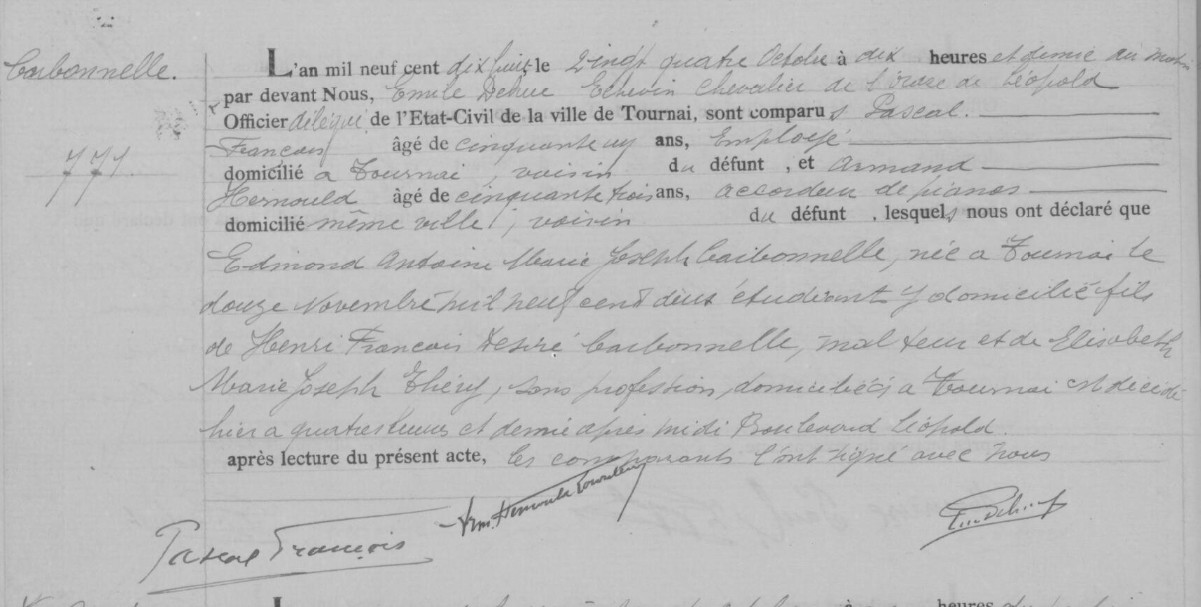 Carbonnelle.
771.
L'an mil neuf cent dix huit, le vingt quatre Octobre à dix heures et demie du matin
par devant Nous, Emile Dehue Echevin Chevalier de l'Ordre de Léopold
Officier délégué de l'Etat-Civil de la ville de Tournai, sont comparus Pascal
François âgé de cinquante un ans, Employé
domicilié à Tournai, voisin du défunt, et Armand
Hernould âgé de cinquante trois ans, accordeur de pianos
domicilié même ville, voisin du défunt, lesquels nous ont déclaré que
Edmond Antoine Marie Joseph Carbonnelle, née a Tournai le
douze Novembre mil neuf cent deux étudiant y domicilié fils
de Henri François Desiré Carbonnelle, malteur et de Elisabeth
Marie Joseph Théry, sans profession, domiciliés a Tournai est décédé
hier a quatre heures et demie après midi Boulevard Léopold.
après lecture du présent acte, les comparants l'ont signé avec Nous
Pascal François
heures